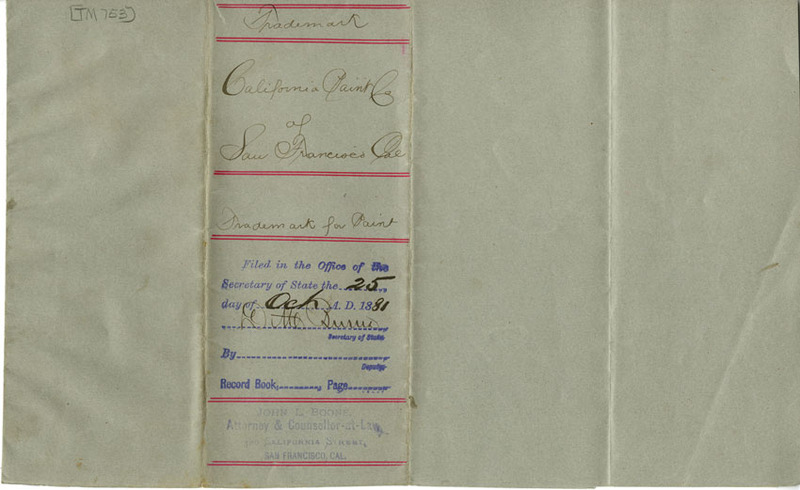 [TM 753]
Trademark
California Paint Co
of
San Francisco Cal
Trademark for Paint
Filed in the Office of the
Secretary of State the 25
day of Oct A. D. 1881
D M Burns
Secretary of State
By
Deputy
Record Book, , Page
JOHN L. BOONE,
Attorney & Counsellor-at-Law,
CALIFORNIA STREET,
SAN FRANCISCO, CAL.